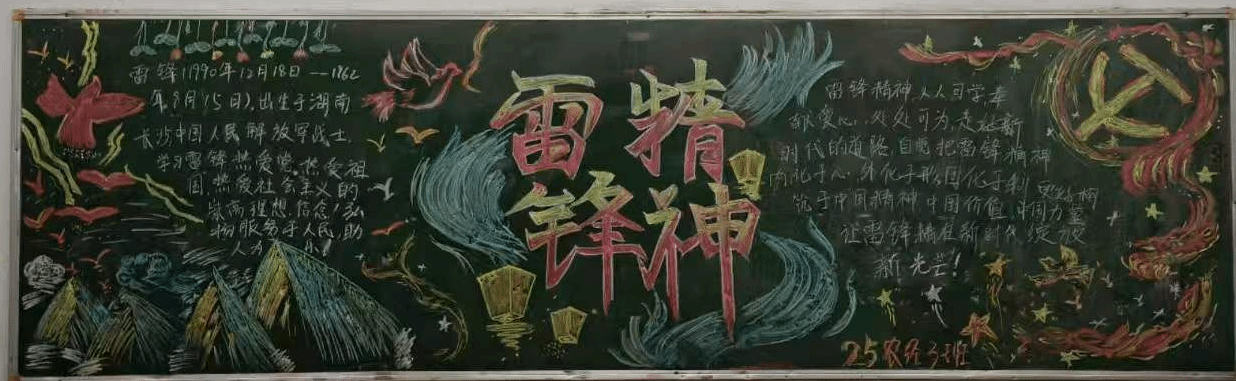 雷锋(1990年12月18日——1962
年8月15日),出生于湖南
长沙中国人民解放军战士,
学习雷锋热爱党、热爱祖
国、热爱社会主义的
崇高理想、信念,弘
扬服务于人民,助
人为乐!
雷 精
锋 神
雷锋精神,人人可学奉
献爱心,处处可为,走
时代的道路,自觉把雷锋精神
内化于心,外化于形,固化于制
筑于中国精神中国价值,中国力量
让雷锋精在新时代绽放
新光芒!
25农经3班